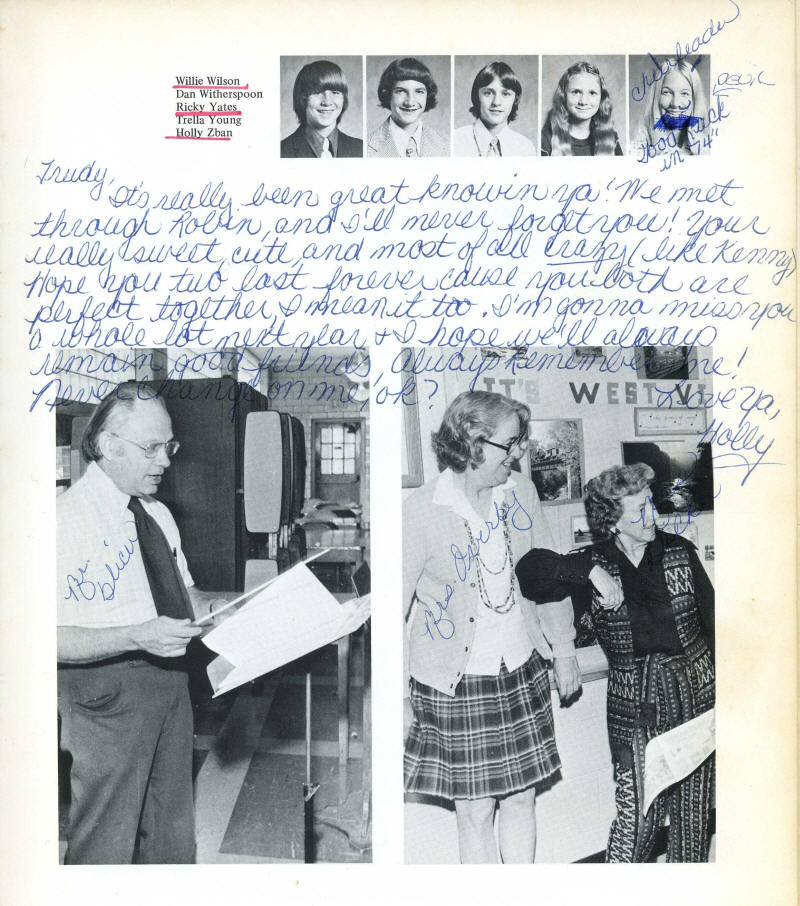 Willie Wilson
Dan Witherspoon
Ricky Yates
Trella Young
Holly Zban
cheerleader
Good Luck
in "74"
Trudy,
It's really been great knowin ya! We met
through Robin, and I'll never forget you! Your
really sweet, cute, and most of all crazy (like Kenny)
Hope you two last forever cause you both are
perfect together, I mean it too. I'm gonna miss you
a whole lot next year & I hope we'll always
remain good friends, always remember me!
Never change on me, ok?
Love ya,
Holly
IT'S WEST VI
Mrs. Overby